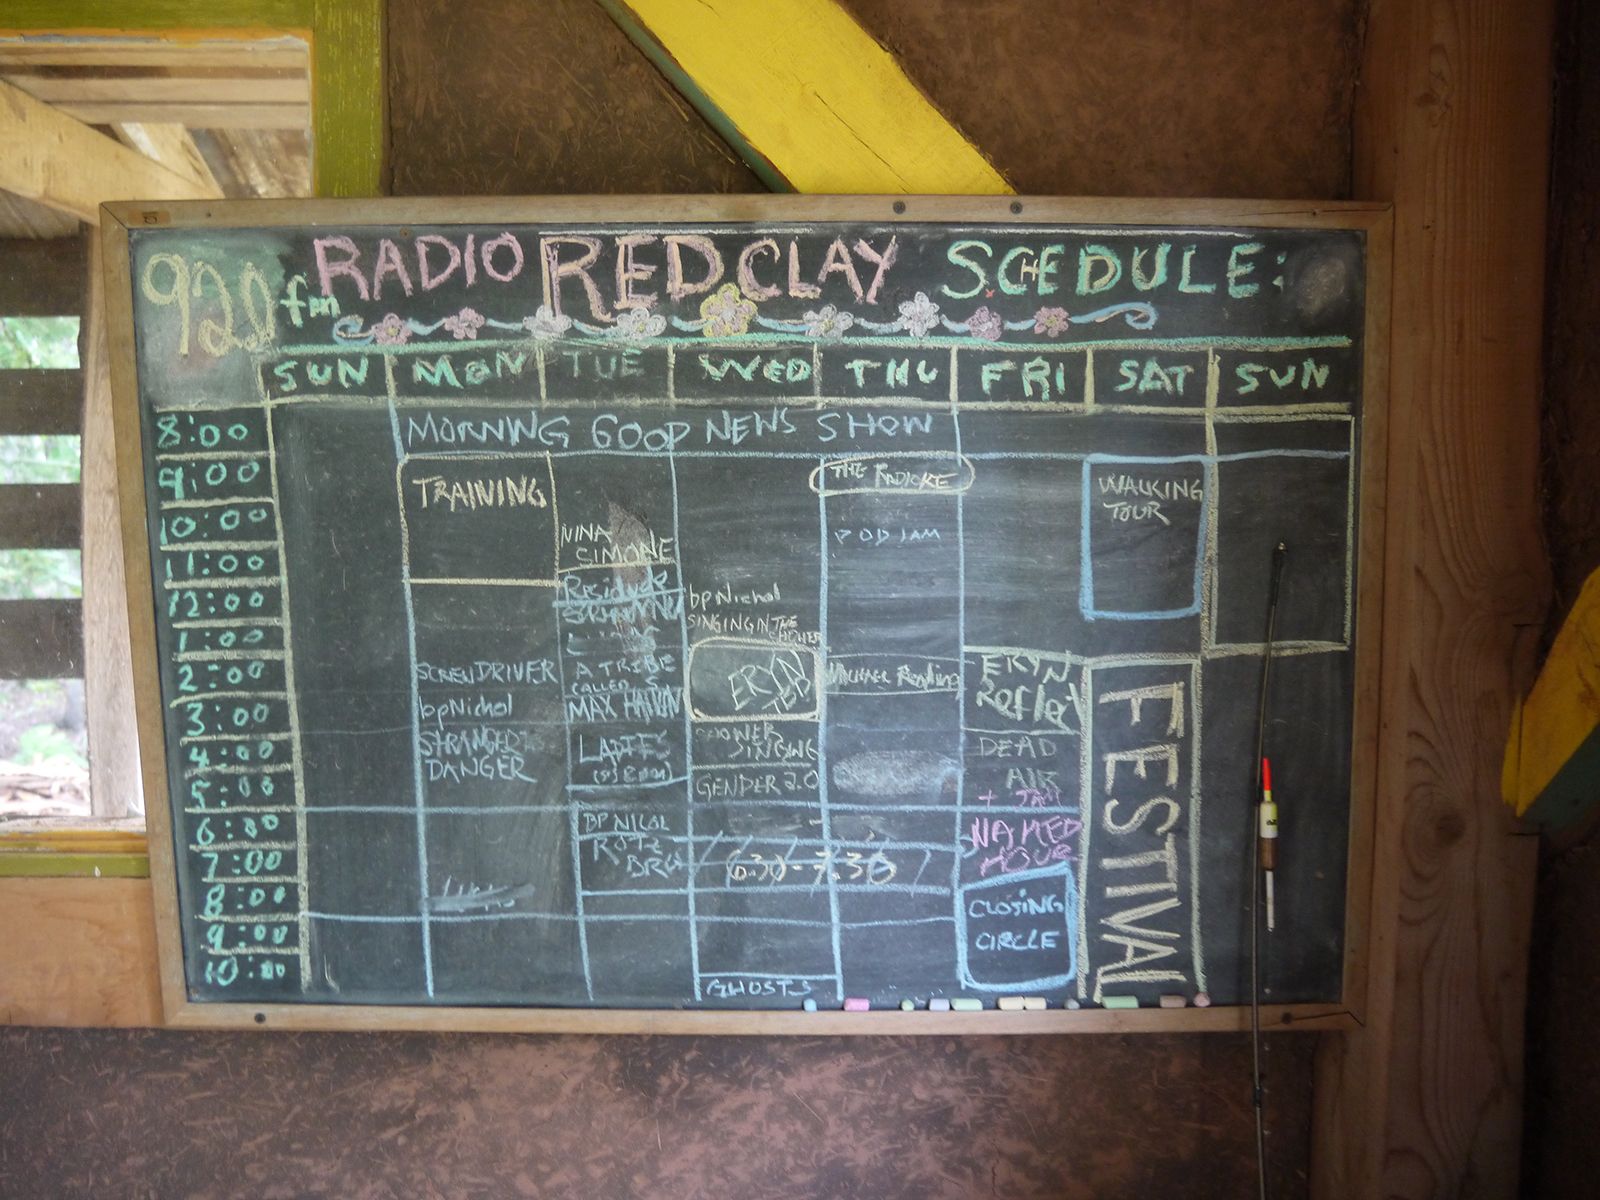 920 fm
RADIO RED CLAY SCHEDULE:
SUN MON TUE WED THU FRI SAT SUN
8:00 MORNING GOOD NEWS SHOW
9:00 TRAINING THE RADIOKE WALKING TOUR
10:00 NINA SIMONE POD JAM
11:00
12:00 bpNichol
SINGING IN THE
1:00
2:00 SCREWDRIVER A TRIBE CALLED ERYN ERYN
3:00 bpNichol MAX
4:00 STRANGER DANGER LADIES SINGING DEAD AIR
5:00 GENDER 2.0 + JAM
6:00 BP NICOL NAKED HOUR
7:00 6:30 - 7:30
8:00 CLOSING
9:00 CIRCLE
10:00 GHOSTS
FESTIVAL